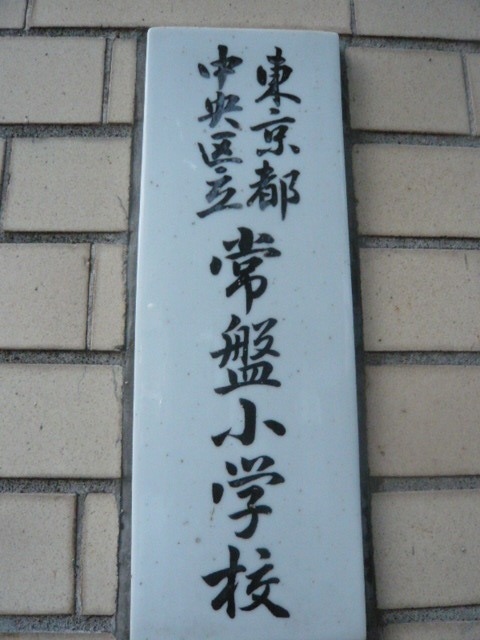 東京都
中央区立
常盤小学校